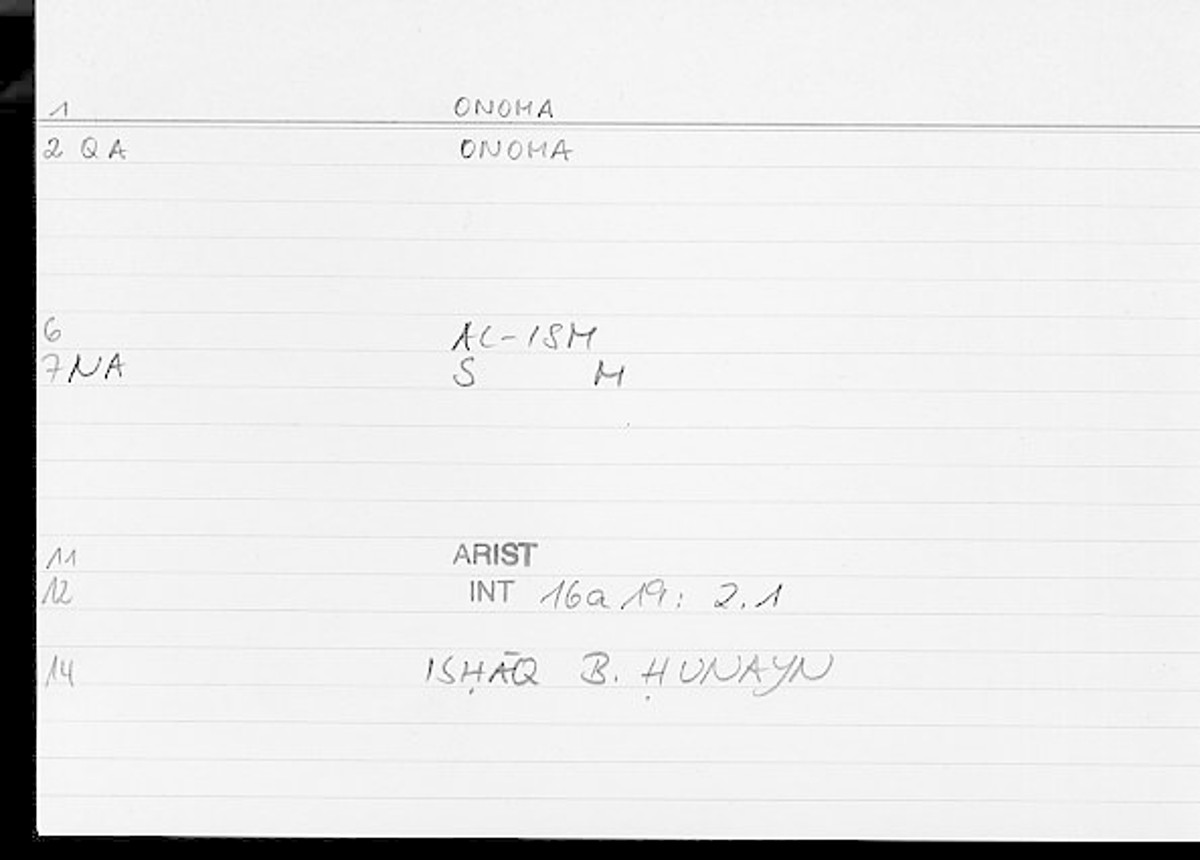 1 ONOMA
2 QA ONOMA
6 AL-ISM
7NA S M
11 ARIST
12 INT 16a19: 2.1
14 ISḤĀQ B. ḤUNAYN